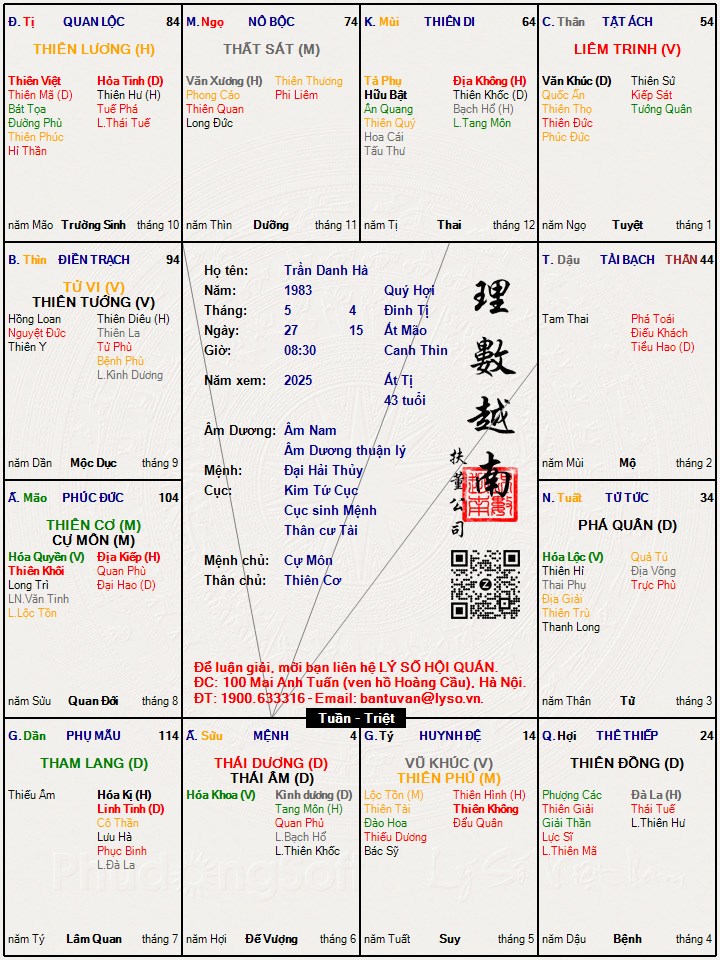 Đ. Tị QUAN LỘC 84
THIÊN LƯƠNG (H)
Thiên Việt Hỏa Tinh (D)
Thiên Mã (D) Thiên Hư (H)
Bát Tọa Tuế Phá
Đường Phù L.Thái Tuế
Thiên Phúc
Hỉ Thần
năm Mão Trường Sinh tháng 10
M. Ngọ NÔ BỘC 74
THẤT SÁT (M)
Văn Xương (H) Thiên Thương
Phong Cáo Phi Liêm
Thiên Quan
Long Đức
năm Thìn Dưỡng tháng 11
K. Mùi THIÊN DI 64
Tả Phụ Địa Không (H)
Hữu Bật Thiên Khốc (D)
Ân Quang Bạch Hổ (H)
Thiên Quý L.Tang Môn
Hoa Cái
Tấu Thư
năm Tị Thai tháng 12
C. Thân TẬT ÁCH 54
LIÊM TRINH (V)
Văn Khúc (D) Thiên Sứ
Quốc Ấn Kiếp Sát
Thiên Thọ Tướng Quân
Thiên Đức
Phúc Đức
năm Ngọ Tuyệt tháng 1
B. Thìn ĐIỀN TRẠCH 94
TỬ VI (V)
THIÊN TƯỚNG (V)
Hồng Loan Thiên Diêu (H)
Nguyệt Đức Thiên La
Thiên Y Tử Phù
Bệnh Phù
L.Kình Dương
năm Dần Mộc Dục tháng 9
Họ tên: Trần Danh Hà
Năm: 1983 Quý Hợi
Tháng: 5 4 Đinh Tị
Ngày: 27 15 Ất Mão
Giờ: 08:30 Canh Thìn
Năm xem: 2025 Ất Tị
43 tuổi
Âm Dương: Âm Nam
Âm Dương thuận lý
Mệnh: Đại Hải Thủy
Cục: Kim Tứ Cục
Cục sinh Mệnh
Thân cư Tài
Mệnh chủ: Cự Môn
Thân chủ: Thiên Cơ
理數越南
扶董公司
Để luận giải, mời bạn liên hệ LÝ SỐ HỘI QUÁN.
ĐC: 100 Mai Anh Tuấn (ven hồ Hoàng Cầu), Hà Nội.
ĐT: 1900.633316 - Email: bantuvan@lyso.vn.
Tuần - Triệt
T. Dậu TÀI BẠCH THÂN 44
Tam Thai Phá Toái
Điếu Khách
Tiểu Hao (D)
năm Mùi Mộ tháng 2
Ấ. Mão PHÚC ĐỨC 104
THIÊN CƠ (M)
CỰ MÔN (M)
Hóa Quyền (V) Địa Kiếp (H)
Thiên Khôi Quan Phù
Long Trì Đại Hao (D)
LN.Văn Tinh
L.Lộc Tồn
năm Sửu Quan Đới tháng 8
N. Tuất TỬ TỨC 34
PHÁ QUÂN (D)
Hóa Lộc (V) Quả Tú
Thiên Hỉ Địa Võng
Thai Phụ Trực Phù
Địa Giải
Thiên Trù
Thanh Long
năm Thân Tử tháng 3
G. Dần PHỤ MẪU 114
THAM LANG (D)
Thiếu Âm Hóa Kị (H)
Linh Tinh (D)
Cô Thần
Lưu Hà
Phục Binh
L.Đà La
năm Tý Lâm Quan tháng 7
Ấ. Sửu MỆNH 4
THÁI DƯƠNG (D)
THÁI ÂM (D)
Hóa Khoa (V) Kình dương (D)
Tang Môn (H)
Quan Phủ
L.Bạch Hổ
L.Thiên Khốc
năm Hợi Đế Vượng tháng 6
G. Tý HUYNH ĐỆ 14
VŨ KHÚC (V)
THIÊN PHỦ (M)
Lộc Tồn (M) Thiên Hình (H)
Thiên Tài Thiên Không
Đào Hoa Đẩu Quân
Thiếu Dương
Bác Sỹ
năm Tuất Suy tháng 5
Q. Hợi THÊ THIẾP 24
THIÊN ĐỒNG (D)
Phượng Các Đà La (H)
Thiên Giải Thái Tuế
Giải Thần L.Thiên Hư
Lực Sĩ
L.Thiên Mã
năm Dậu Bệnh tháng 4